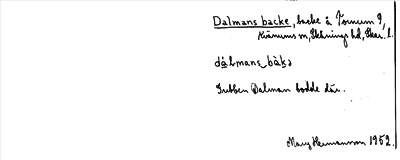 Dalmans backe, backe å Törneum 9,
Kvänums sn, Skånings hd, Skar. l.
dálmans bàkə
Gubben Dalman bodde där.
Mary Hermansson 1952.